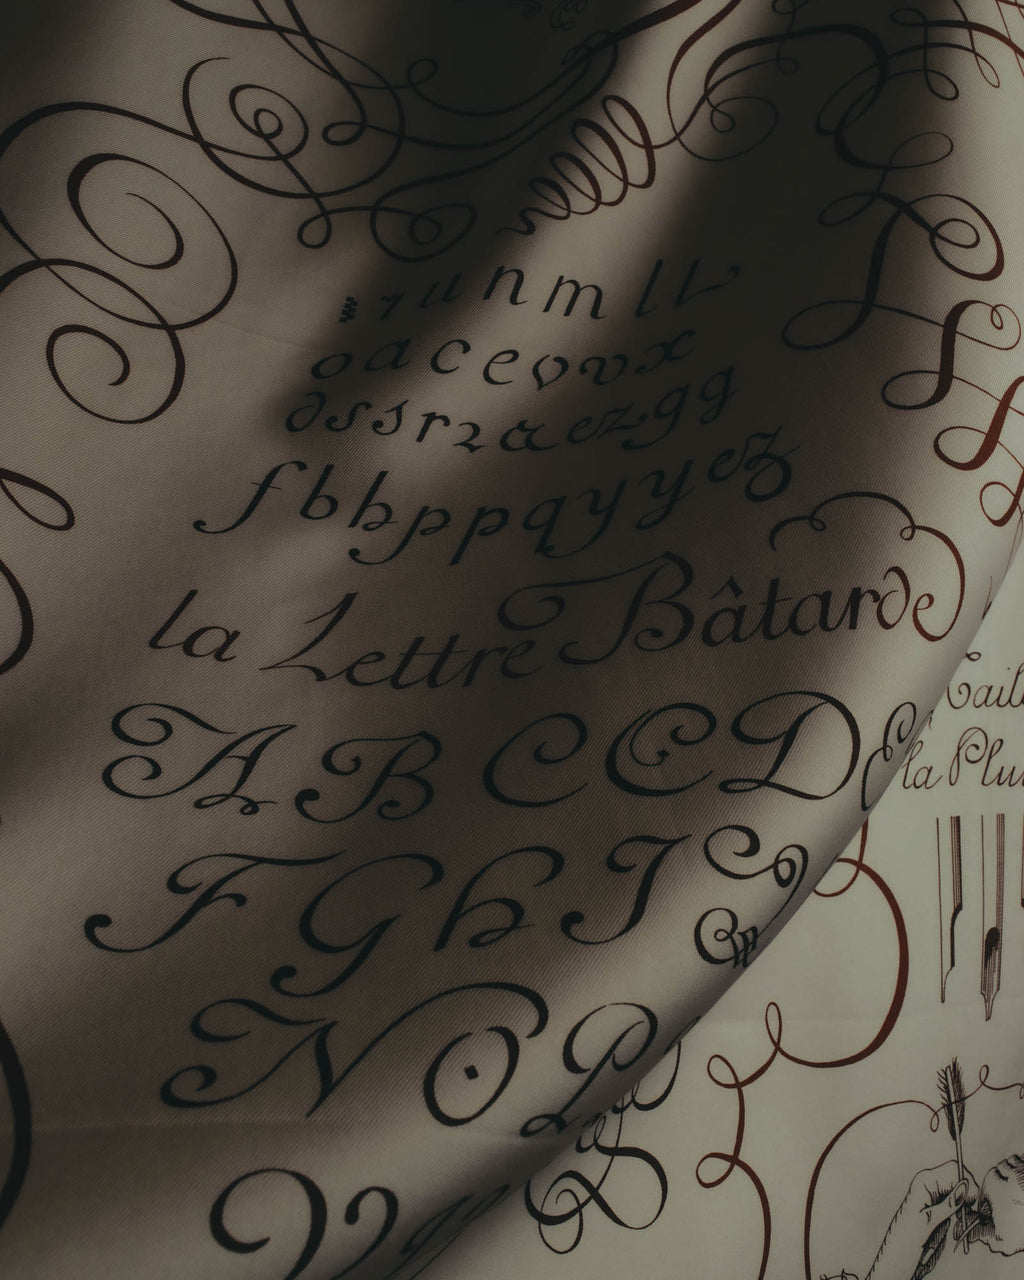 r u n m l l
o a c e o v x
d s s r 2 a e z g g
f b h p p q y y e z
la Lettre Bâtarde
A B C C D E
F G h I
N O P
la